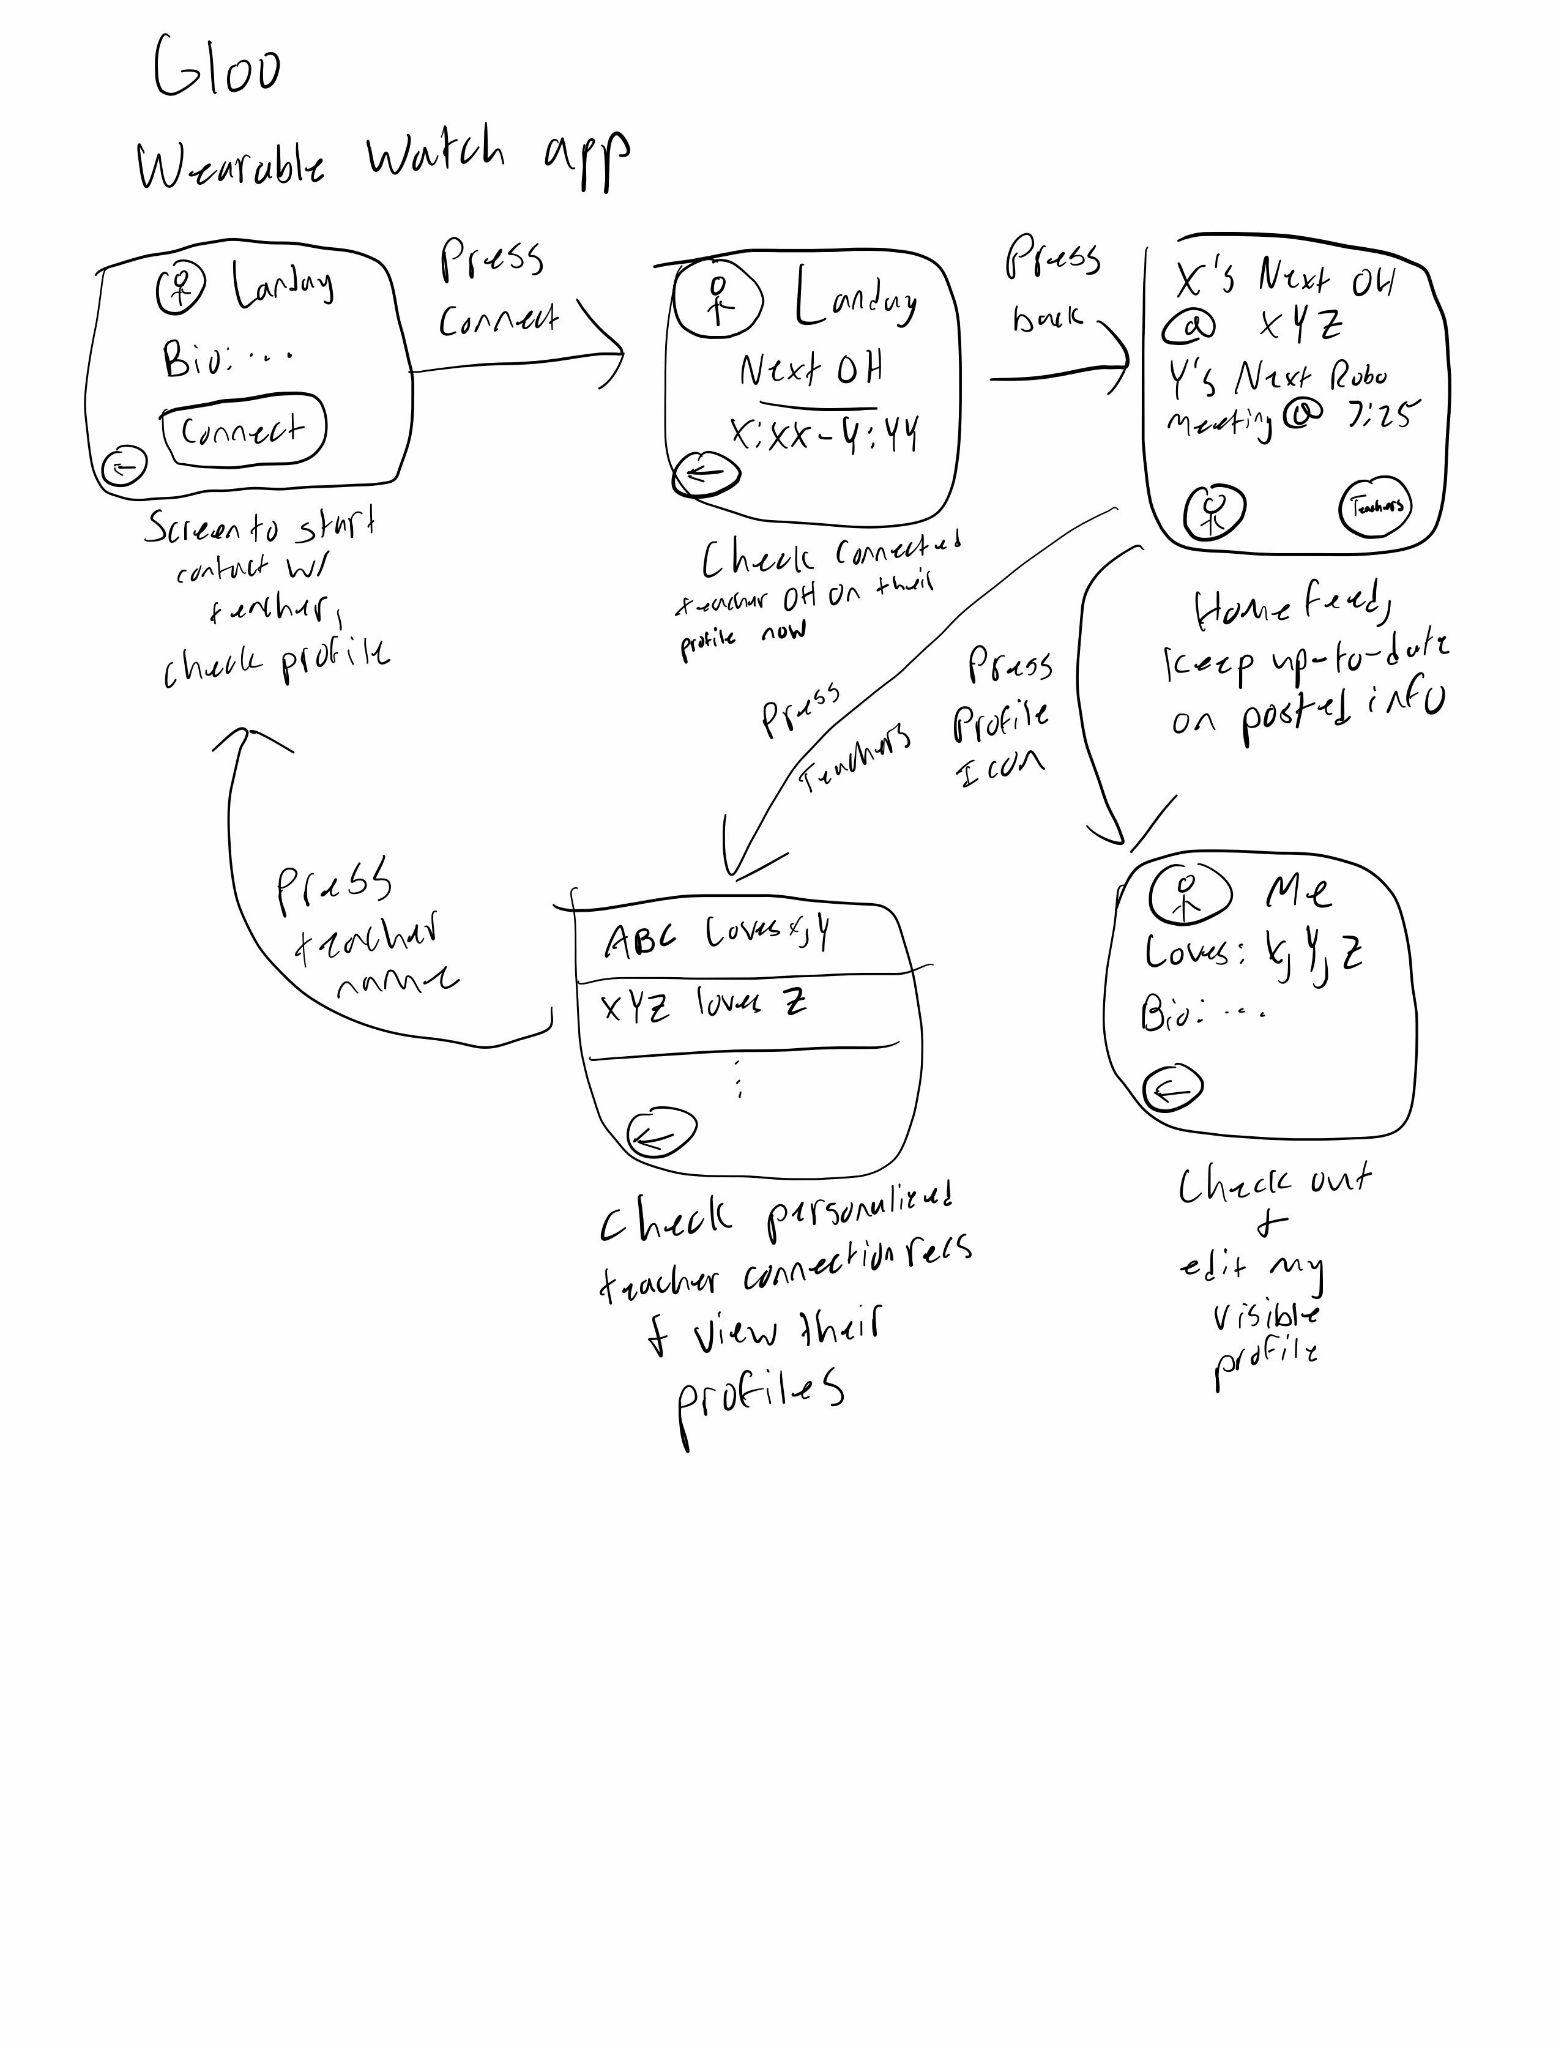 Gloo
Wearable Watch app
Landay
Bio: ...
Connect
←
Screen to start
contact w/
teacher,
check profile
Press
Connect
Landay
Next OH
X:XX - Y:YY
←
Check connected
teacher OH on their
profile now
Press
back
X's Next OH
@ XYZ
Y's Next Robo
Meeting @ 7:25
Teachers
Home feed,
keep up-to-date
on posted info
Press
Teachers
Press
Profile
Icon
Press
teacher
name
ABC Loves x, y
XYZ loves Z
⋮
←
Check personalized
teacher connection recs
& view their
profiles
Me
Loves: X, Y, Z
Bio: ...
←
Check out
&
edit my
visible
profile